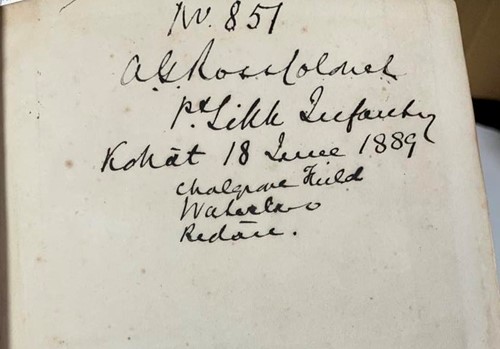 No. 851
A. G. Ross Colonel
1st Sikh Infantry
Kohát 18 June 1889
Chalgrove Field
Waterloo
Redan.